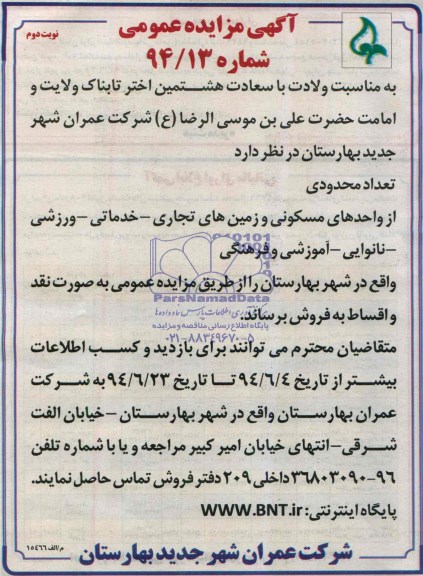 آگهی مزایده عمومی
نوبت دوم
شماره ۹۴/۱۳
به مناسبت ولادت با سعادت هشتمین اختر تابناک ولایت و
امامت حضرت علی بن موسی الرضا (ع) شرکت عمران شهر
جدید بهارستان در نظر دارد
تعداد محدودی
از واحدهای مسکونی و زمین های تجاری -خدماتی -ورزشی
-نانوایی -آموزشی و فرهنگی
واقع در شهر بهارستان را از طریق مزایده عمومی به صورت نقد
و اقساط به فروش برساند.
متقاضیان محترم می توانند برای بازدید و کسب اطلاعات
بیشتر از تاریخ ۹۴/۶/۴ تا تاریخ ۹۴/۶/۲۳ به شرکت
عمران بهارستان واقع در شهر بهارستان -خیابان الفت
شرقی-انتهای خیابان امیر کبیر مراجعه و یا با شماره تلفن
۹۶-۳۶۸۰۳۰۹۰ داخلی ۲۰۹ دفتر فروش تماس حاصل نمایند.
پایگاه اینترنتی: WWW.BNT.ir
م/الف ۱۵۴۶۶
شرکت عمران شهر جدید بهارستان
ParsNamadData
پایگاه اطلاع رسانی مناقصه و مزایده
۰۲۱-۸۸۳۴۹۶۷۰-۵